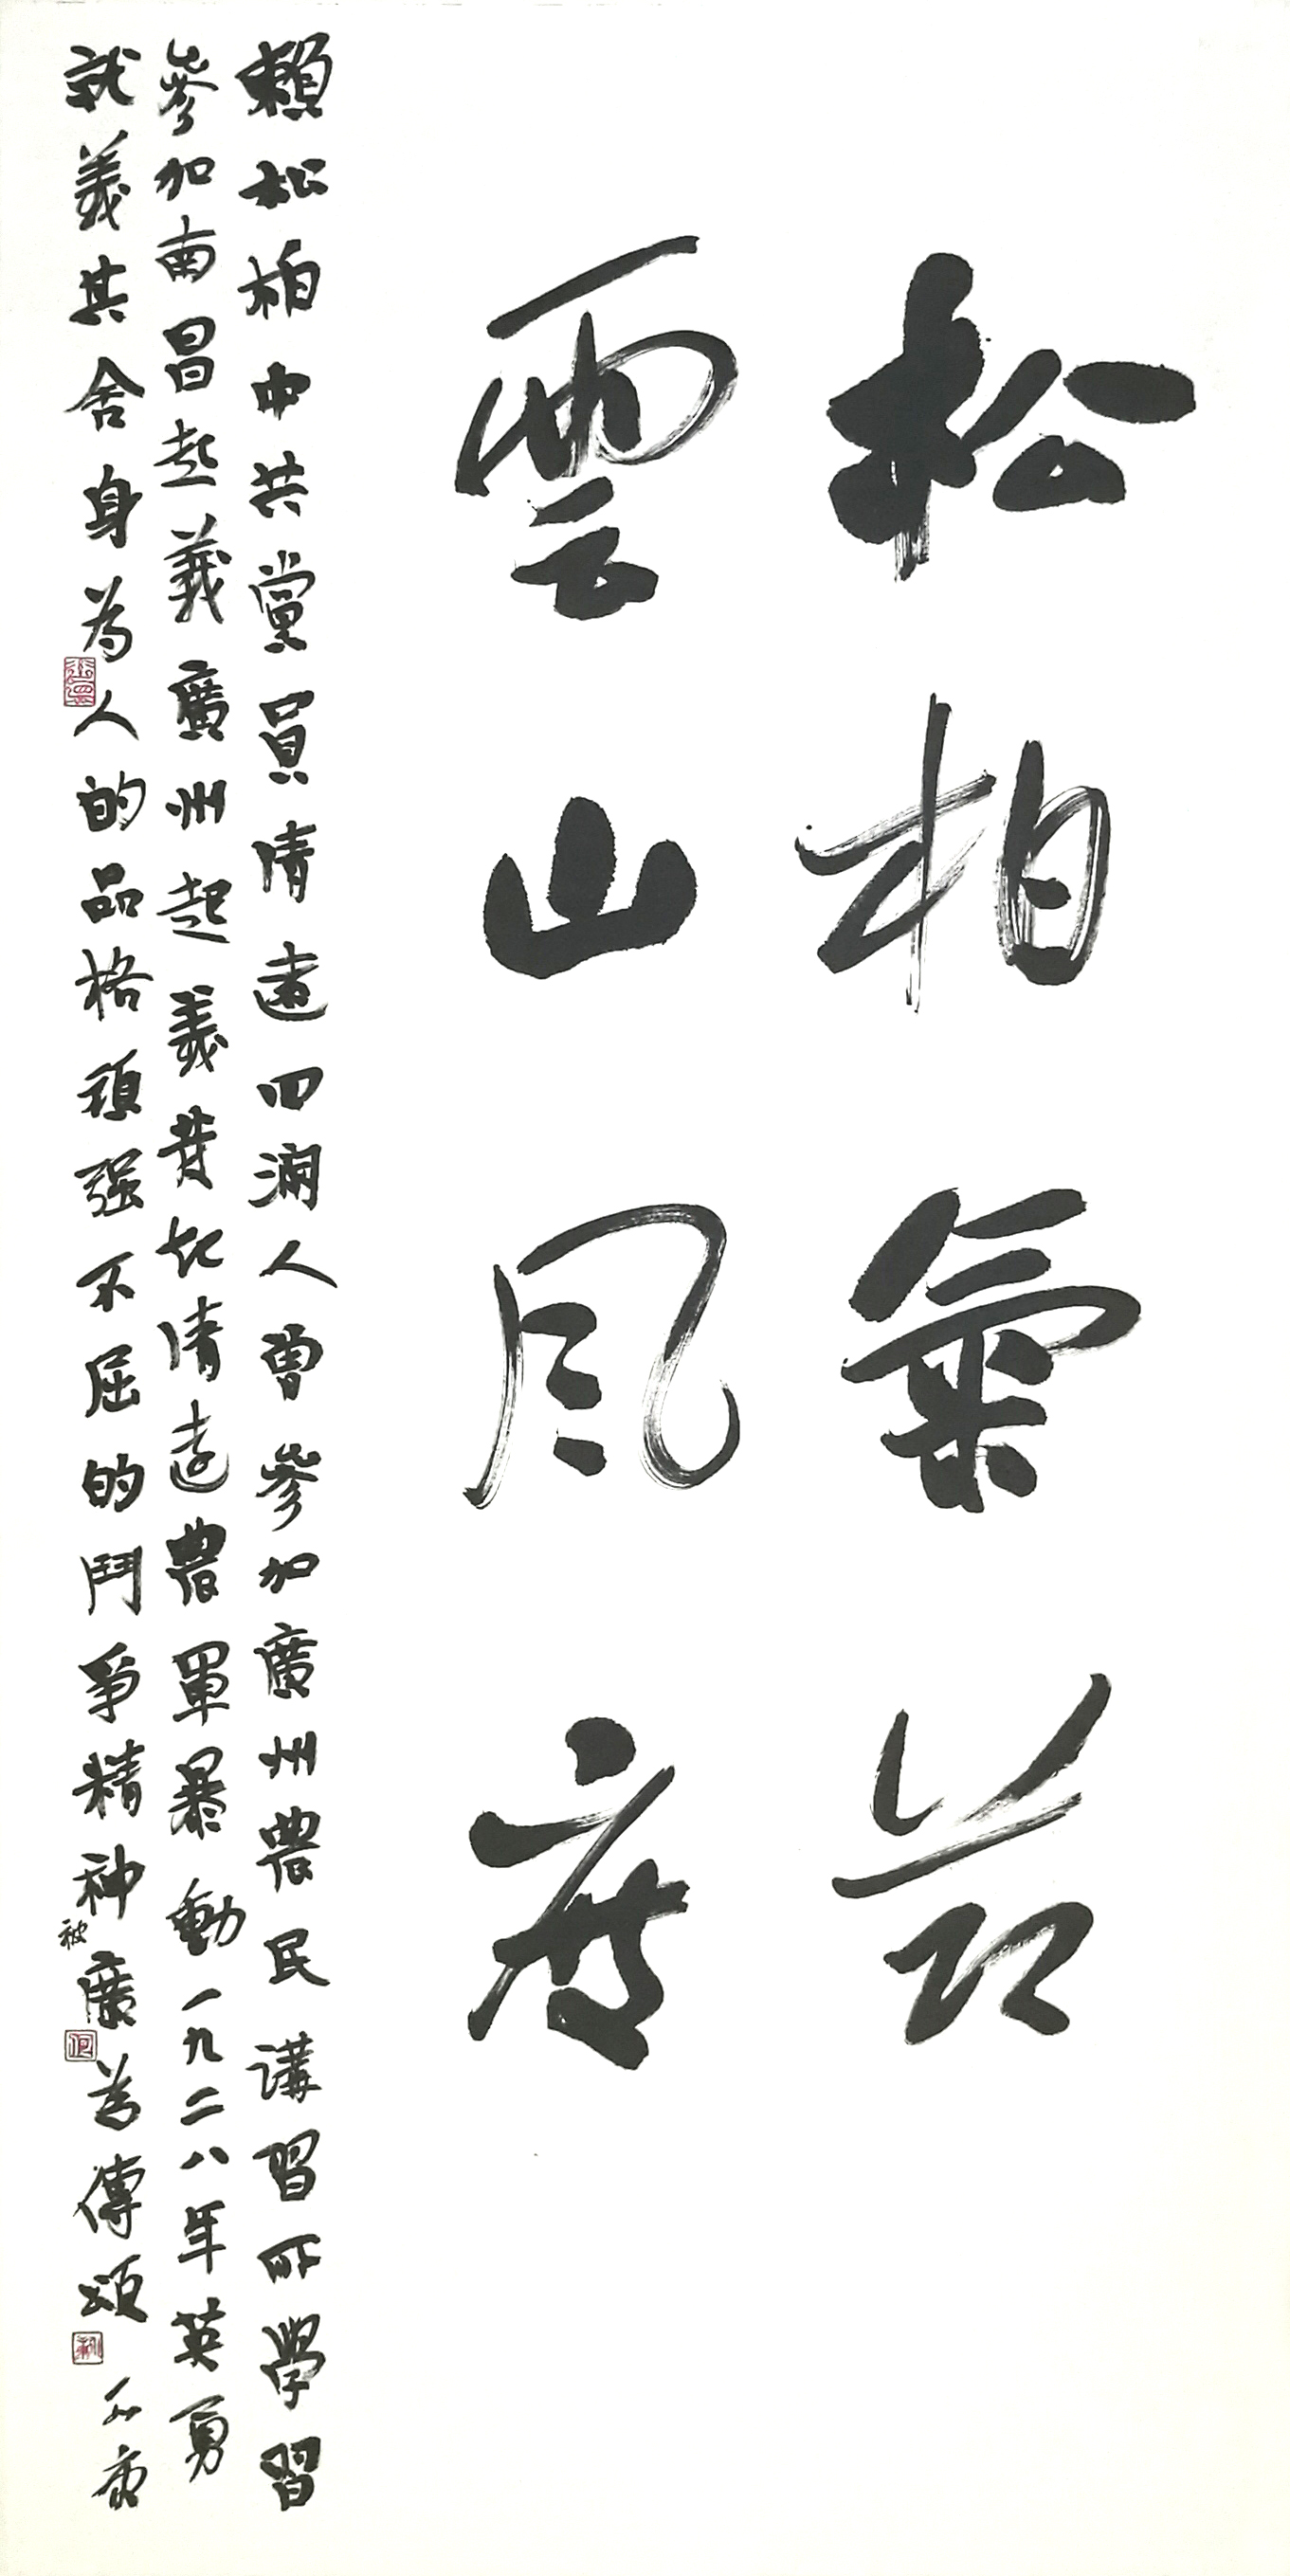 松柏氣節
雲山风度
賴松柏中共黨員清遠四洞人曾參加廣州農民講習所學習
參加南昌起義廣州起義發起清遠農軍暴動一九二八年英勇
就義其舍身為人的品格頑强不屈的鬥爭精神廣為傳頌
被